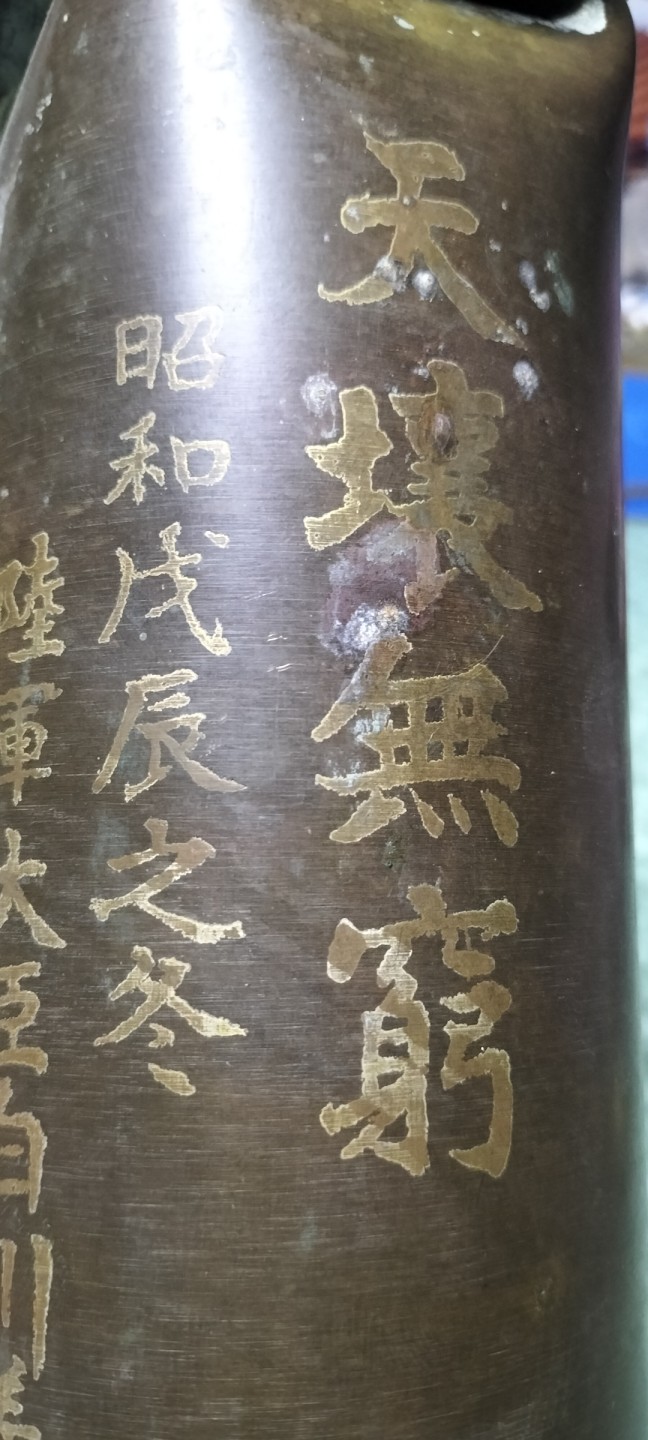 天壤無窮
昭和戊辰之冬
陸軍大臣白川義